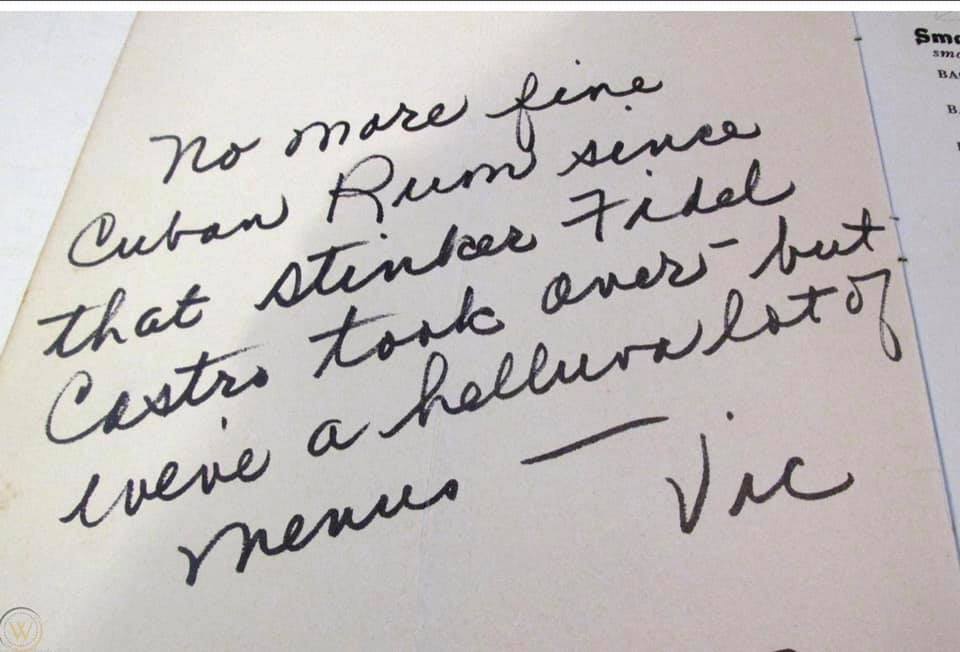 No more fine
Cuban Rum since
that stinker Fidel
Castro took over - but
weve a helluva lot of
menus — Vic
W